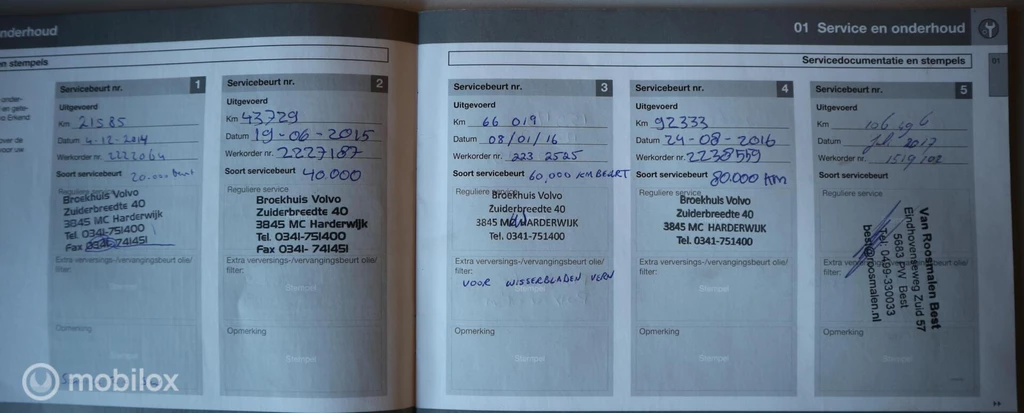 nderhoud
n stempels
onder-
en gete-
o Erkend
over de
oor uw
Servicebeurt nr. 1
Uitgevoerd
Km 21585
Datum 4-12-2014
Werkorder nr. 2222064
Soort servicebeurt 20.000 beurt
Reguliere service
Broekhuis Volvo
Zuiderbreedte 40
3845 MC Harderwijk
Tel. 0341-751400
Fax 0341-741451
Extra verversings-/vervangingsbeurt olie/
filter:
Stempel
Opmerking
Stempel
Servicebeurt nr. 2
Uitgevoerd
Km 43729
Datum 19-06-2015
Werkorder nr. 2227187
Soort servicebeurt 40.000
Reguliere service
Broekhuis Volvo
Zuiderbreedte 40
3845 MC Harderwijk
Tel. 0341-751400
Fax 0341- 741451
Extra verversings-/vervangingsbeurt olie/
filter:
Stempel
Opmerking
Stempel
01 Service en onderhoud
Servicedocumentatie en stempels
01
Servicebeurt nr. 3
Uitgevoerd
Km 66 019
Datum 08/01/16
Werkorder nr. 223 2525
Soort servicebeurt 60,000 KM BEURT
Reguliere service
Broekhuis Volvo
Zuiderbreedte 40
3845 MC HARDERWIJK
Tel. 0341-751400
Extra verversings-/vervangingsbeurt olie/
filter:
VOOR WISSERBLADEN VERV
Stempel
Opmerking
Stempel
Servicebeurt nr. 4
Uitgevoerd
Km 92333
Datum 24-08-2016
Werkorder nr. 2238559
Soort servicebeurt 80.000 km
Reguliere service
Broekhuis Volvo
Zuiderbreedte 40
3845 MC HARDERWIJK
Tel. 0341-751400
Extra verversings-/vervangingsbeurt olie/
filter:
Stempel
Opmerking
Stempel
Servicebeurt nr. 5
Uitgevoerd
Km 106 496
Datum Jul. 2017
Werkorder nr. 1519/02
Soort servicebeurt
Reguliere service
Van Roosmalen Best
Eindhovenseweg Zuid 57
5683 PW Best
Tel. 0499-330033
best@roosmalen.nl
Extra verversings-/vervangingsbeurt olie/
filter:
Opmerking
Stempel
mobilox